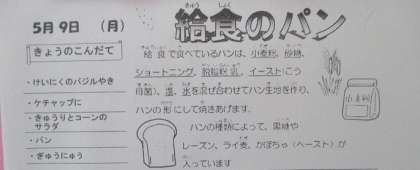 5月9日 (月)
きょうのこんだて
・けいにくのバジルやき
・ケチャップに
・きゅうりとコーンの
サラダ
・パン
・ぎゅうにゅう
給食のパン
給食で食べているパンは、小麦粉、砂糖、
ショートニング、脱脂粉乳、イースト(こう
母菌)、塩、水を混ぜ合わせてパン生地を作り、
パンの形にして焼きあげます。
パンの種類によって、黒糖や
レーズン、ライ麦、かぼちゃ(ペースト)が
入っています
小麦粉